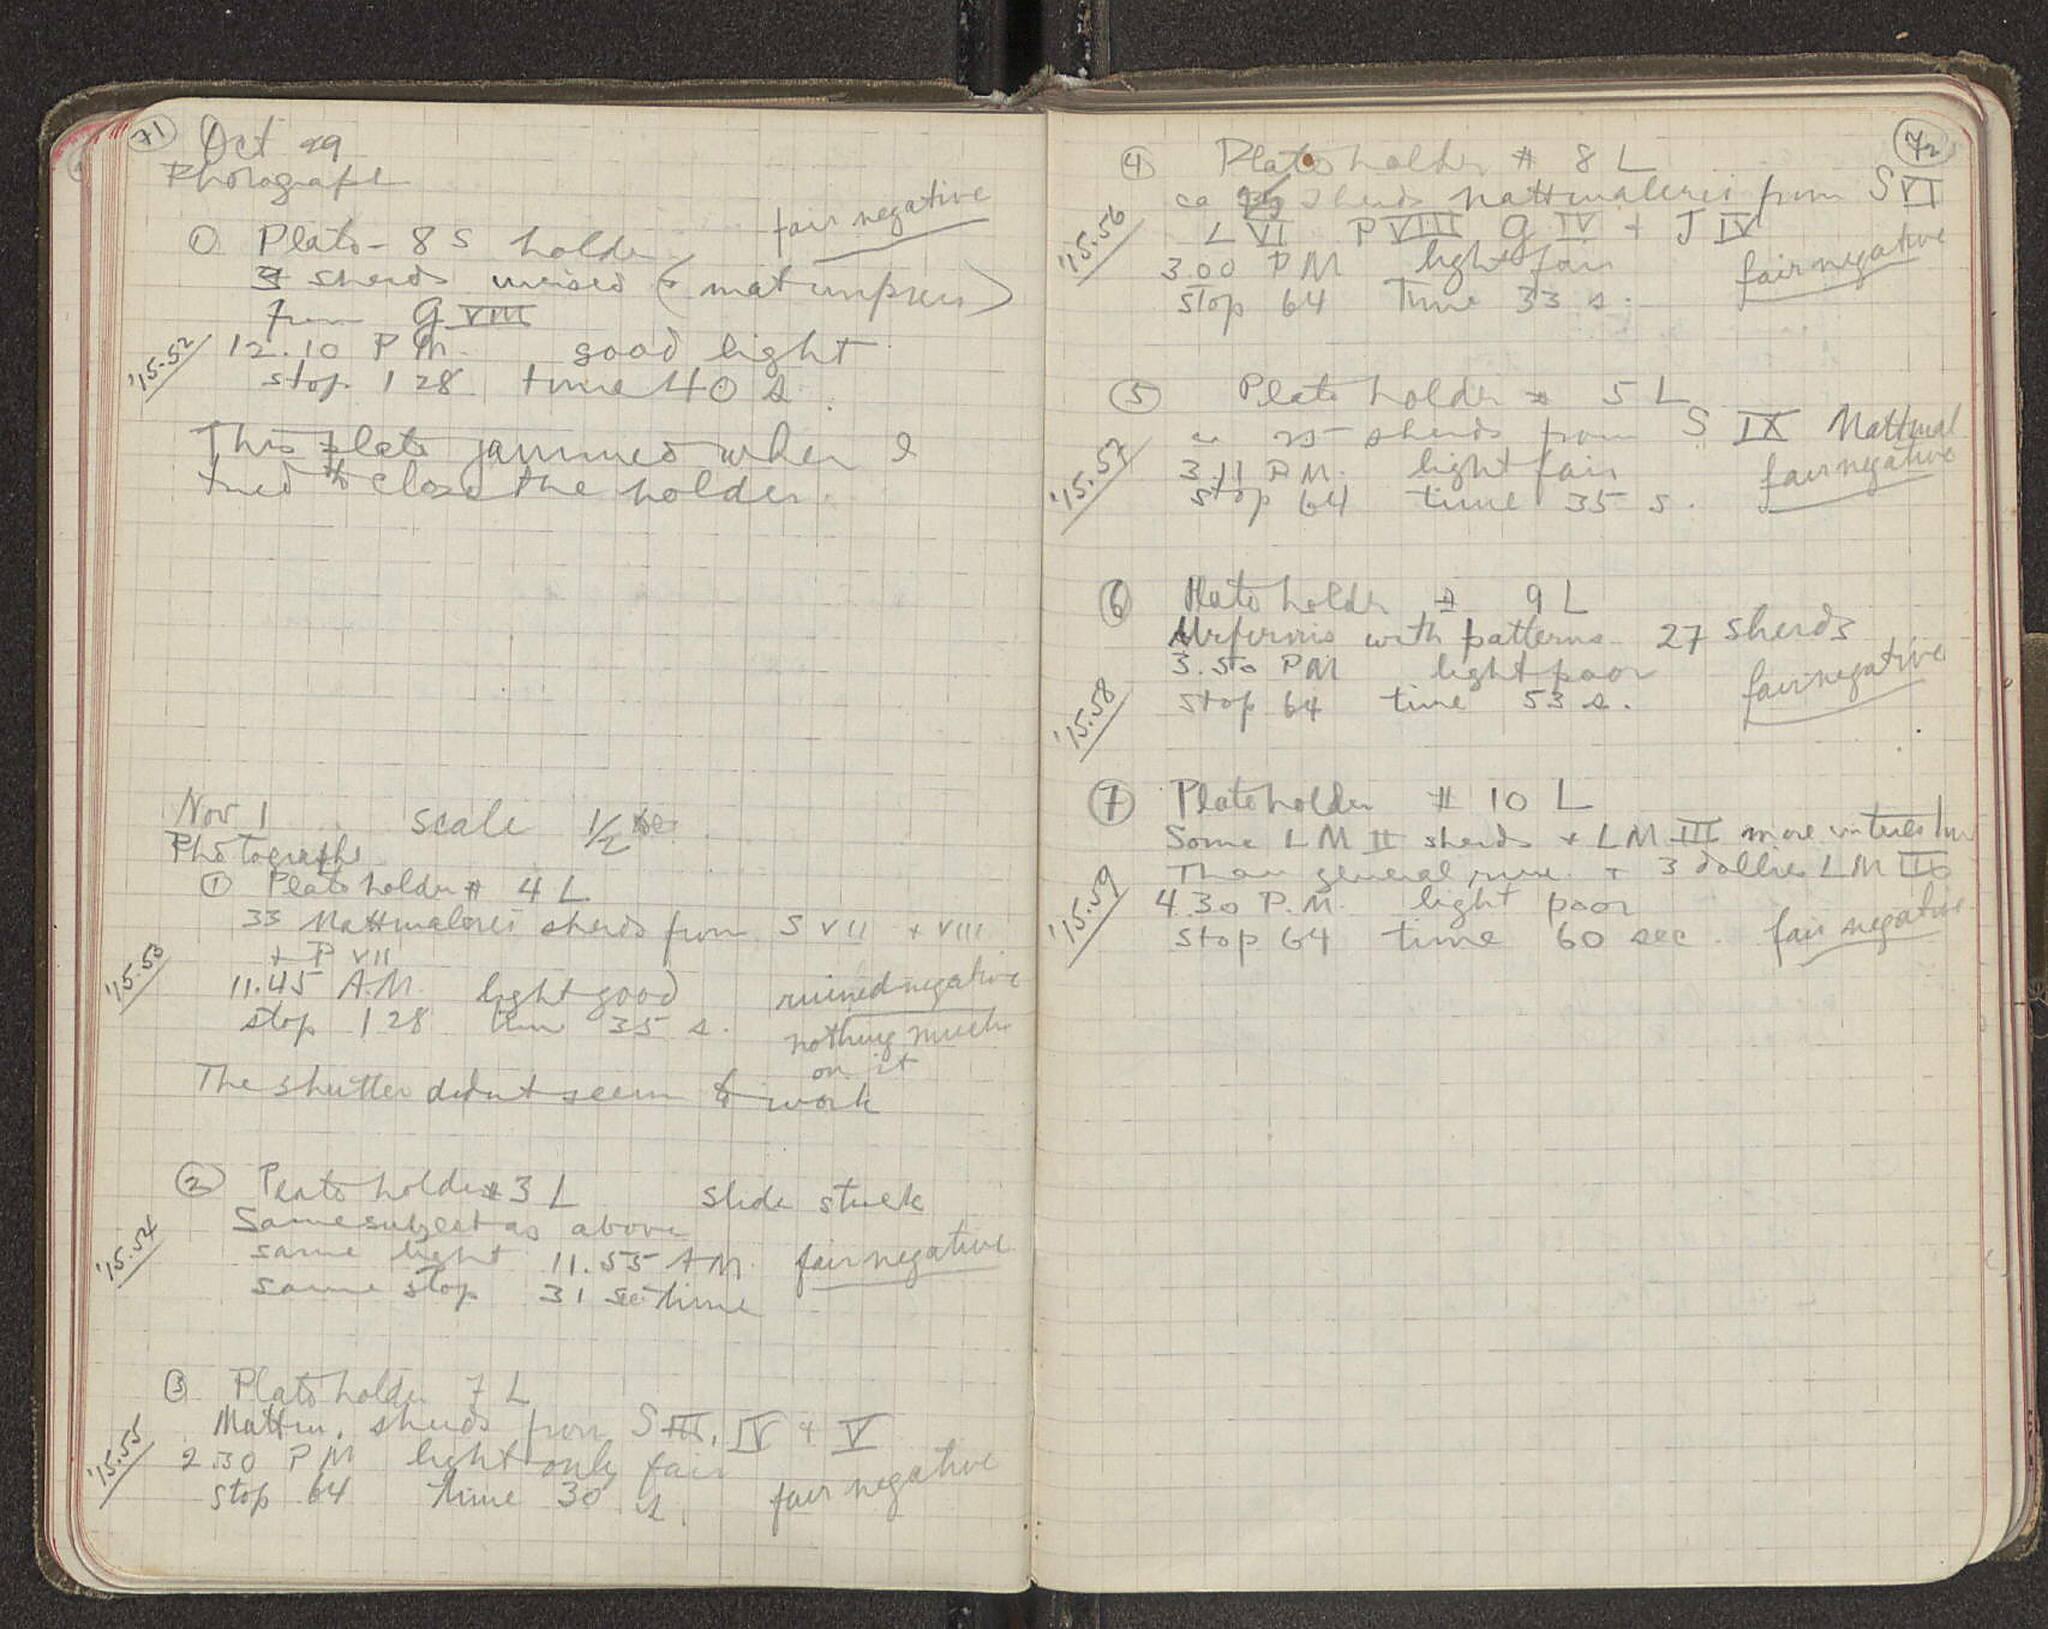 71
Oct 29
Photograph
① Plate - 8 S holder
fair negative
sherds incised (+ mat impress)
from G VIII
'15.52
12.10 P M. good light
stop 128 time 40 s.
This plate jammed when I
tried to close the holder.
Nov 1 scale 1/2
Photographs
① Plate holder # 4 L
33 Mattmalerei sherds from S VII + VIII
+ P VII
'15.53
11.45 A.M. light good
ruined negative
stop 128 time 35 s.
nothing much
on it
The shutter didn't seem to work
② Plate holder # 3 L slide stuck
Same subject as above
'15.54
same light 11.55 AM. fair negative
same stop 31 sec time
③ Plate holder 7 L
Mattm. sherds from S III, IV + V
'15.55
2.30 P M light only fair
stop 64 time 30 s.
fair negative
72
④ Plate holder # 8 L
ca sherds mattmalerei from S VI
L VI P VIII G IV + J IV
'15.56
3.00 P M light fair
fair negative
stop 64 Time 33 s.
⑤ Plate holder # 5 L
ca 25 sherds from S IX Mattmal
'15.57
3.11 P M. light fair
fair negative
stop 64 time 35 s.
⑥ Plate holder # 9 L
Urfirnis with patterns 27 sherds
3.50 PM light poor
fair negative
'15.58
stop 64 time 53 s.
⑦ Plate holder # 10 L
Some L M II sherds + L M III more interesting
than general run + 3 dollies L M III
'15.59
4.30 P.M. light poor
stop 64 time 60 sec.
fair negative